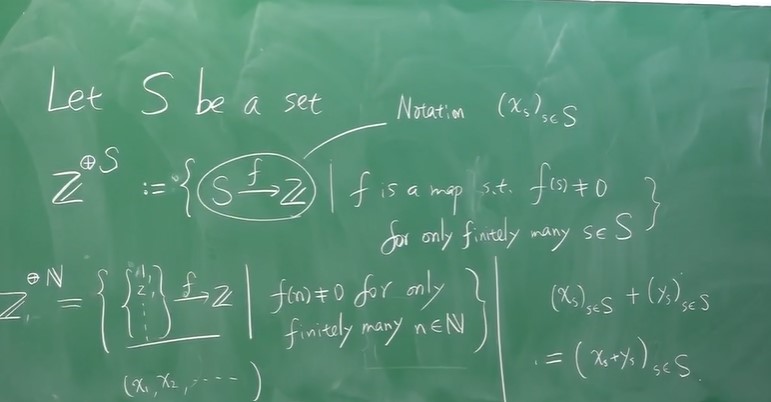 Let S be a set
Notation (x_s)_{s∈S}
ℤ^{⊕S} := { S →^f ℤ | f is a map s.t. f(s) ≠ 0
for only finitely many s∈S }
ℤ^{⊕ℕ} = { {1, 2, ⋮} →^f ℤ | f(n) ≠ 0 for only
finitely many n∈ℕ }
(x₁, x₂, ‑‑‑‑)
(x_s)_{s∈S} + (y_s)_{s∈S}
:= (x_s+y_s)_{s∈S}.